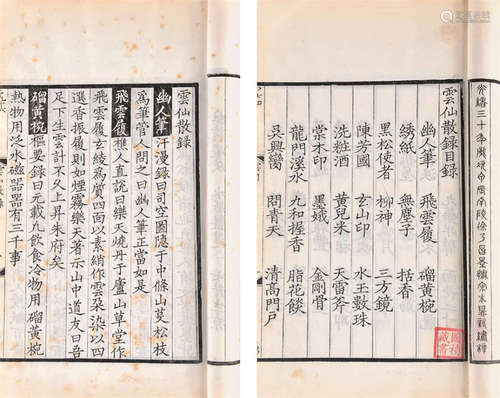 光緒三十年歲次甲辰南陵徐乃昌景宋本
雲仙散錄目錄
幽人筆 飛雲履 磂黃椀
繡紙 無塵子 括香
黑松使者 柳神 三方鏡
陳芳國 玄山印 水玉數珠
洗粧酒 黃兒米 天雷斧
棠木印 墨娥 金剛骨
龍門溪水 九和握香 脂花餤
吳興臠 問青天 清高門戶
雲仙散錄
幽人筆 汗漫錄曰司空圖隱于中條山芟松枝
為筆管人問之曰幽人筆正當如是
飛雲履 樵人直說曰樂天燒丹于廬山草堂作
飛雲履玄綾為質四面以素綃作雲朵染以四
選香振履則如煙霧樂天著示山中道友曰吾
足下生雲計不久上昇朱府矣
磂黃椀 樞要錄曰元載凡飲食冷物用磂黃椀
熱物用泛水磁器器有三千事